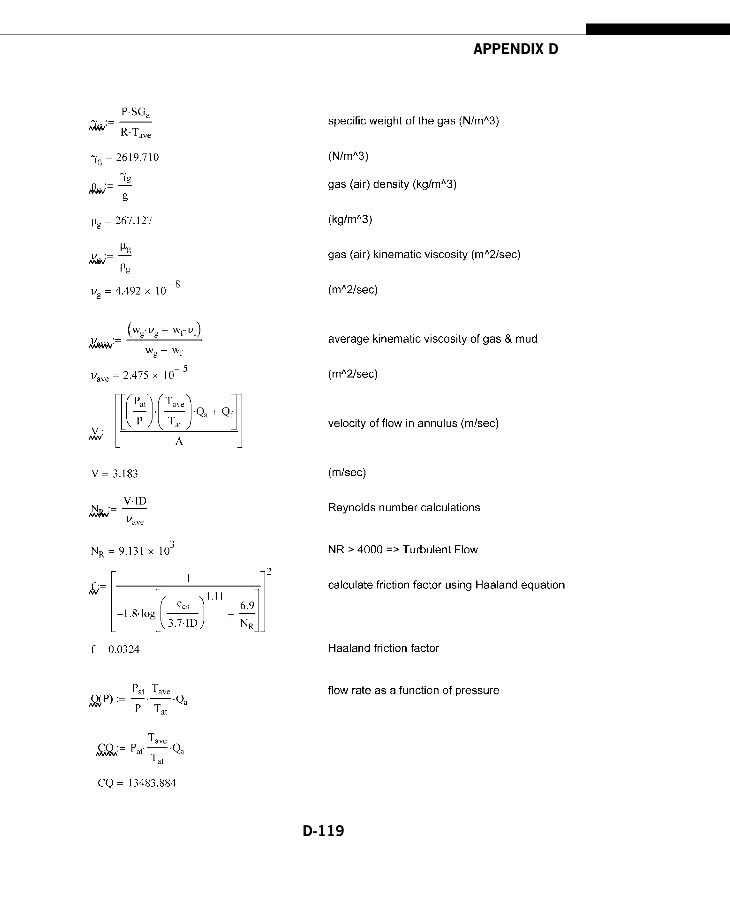 APPENDIX D
γg := P·SGa / (R·Tave) specific weight of the gas (N/m^3)
γg = 2619.710 (N/m^3)
ρg := γg / g gas (air) density (kg/m^3)
ρg = 267.127 (kg/m^3)
νg := μg / ρg gas (air) kinematic viscosity (m^2/sec)
νg = 4.492 × 10^-8 (m^2/sec)
νave := (wg·νg + wf·νf) / (wg + wf) average kinematic viscosity of gas & mud
νave = 2.475 × 10^-5 (m^2/sec)
V := [[(Pat / P)·(Tave / Tat)·Qa + Qf] / A] velocity of flow in annulus (m/sec)
V = 3.183 (m/sec)
NR := V·ID / νave Reynolds number calculations
NR = 9.131 × 10^3 NR > 4000 => Turbulent Flow
f := [1 / (-1.8·log[(ecs / (3.7·ID))^1.11 + 6.9 / NR])]^2 calculate friction factor using Haaland equation
f = 0.0324 Haaland friction factor
Q(P) := Pat / P · Tave / Tat ·Qa flow rate as a function of pressure
CQ := Pat· Tave / Tat ·Qa
CQ = 13483.884
D-119